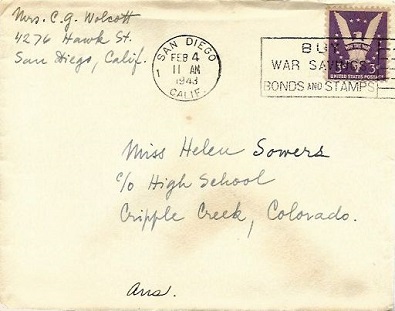 Mrs. C.G. Wolcott
4276 Hawk St.
San Diego, Calif.
SAN DIEGO
FEB 4
11 AM
1943
1
CALIF.
BUY
WAR SAVINGS
BONDS AND STAMPS
3¢ 3¢
UNITED STATES POSTAGE
Miss Helen Sowers
c/o High School
Cripple Creek, Colorado.
Ans.